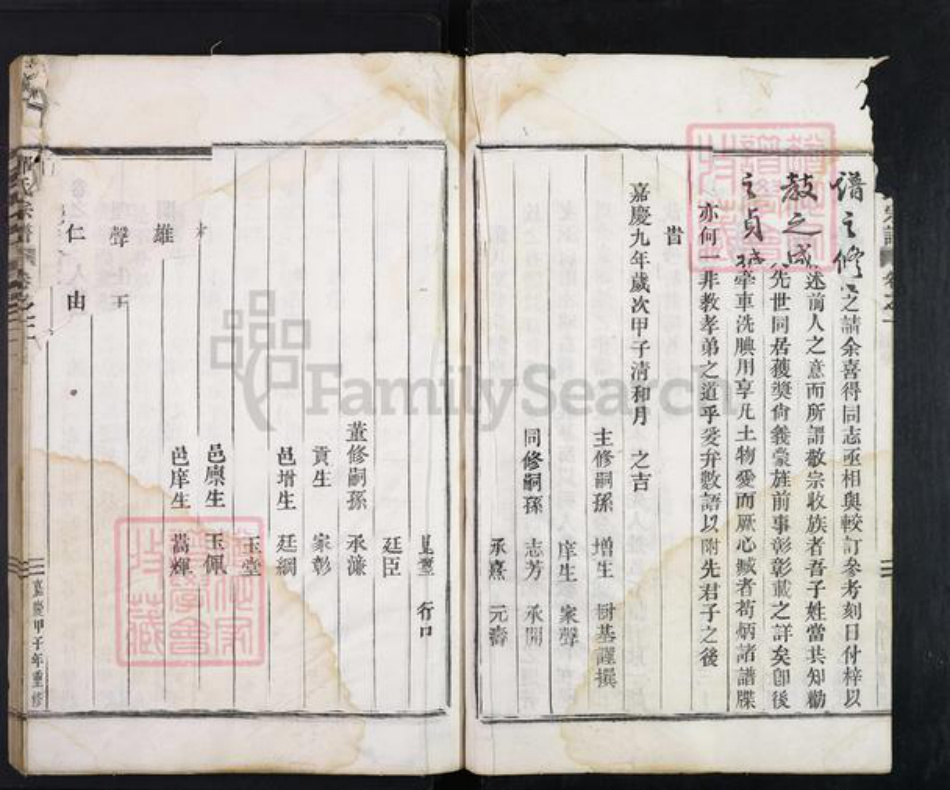 譜之修之請余喜得同志亟相與較訂參考刻日付梓以
教之成述前人之意而所謂敬宗收族者吾子姓當共知勸
先世同居獲獎尚義蒙旌前事彰彰載之詳矣卽後
之貞牽車洗腆用享凡土物愛而厥心臧者苟炳諸譜牒
亦何一非教孝弟之道乎爰弁數語以附先君子之後
嘉慶九年歲次甲子清和月 之吉
主修嗣孫 增生 樹基謹撰
庠生 家聲
同修嗣孫 志芳 承開
承熹 元壽
廷臣
董修嗣孫 承濂
貢生 家彰
邑增生 廷綱
玉堂
邑廩生 玉佩
邑庠生 蒿輝
雄
聲
仁由
氏宗譜
嘉慶甲子年重修
FamilySearch